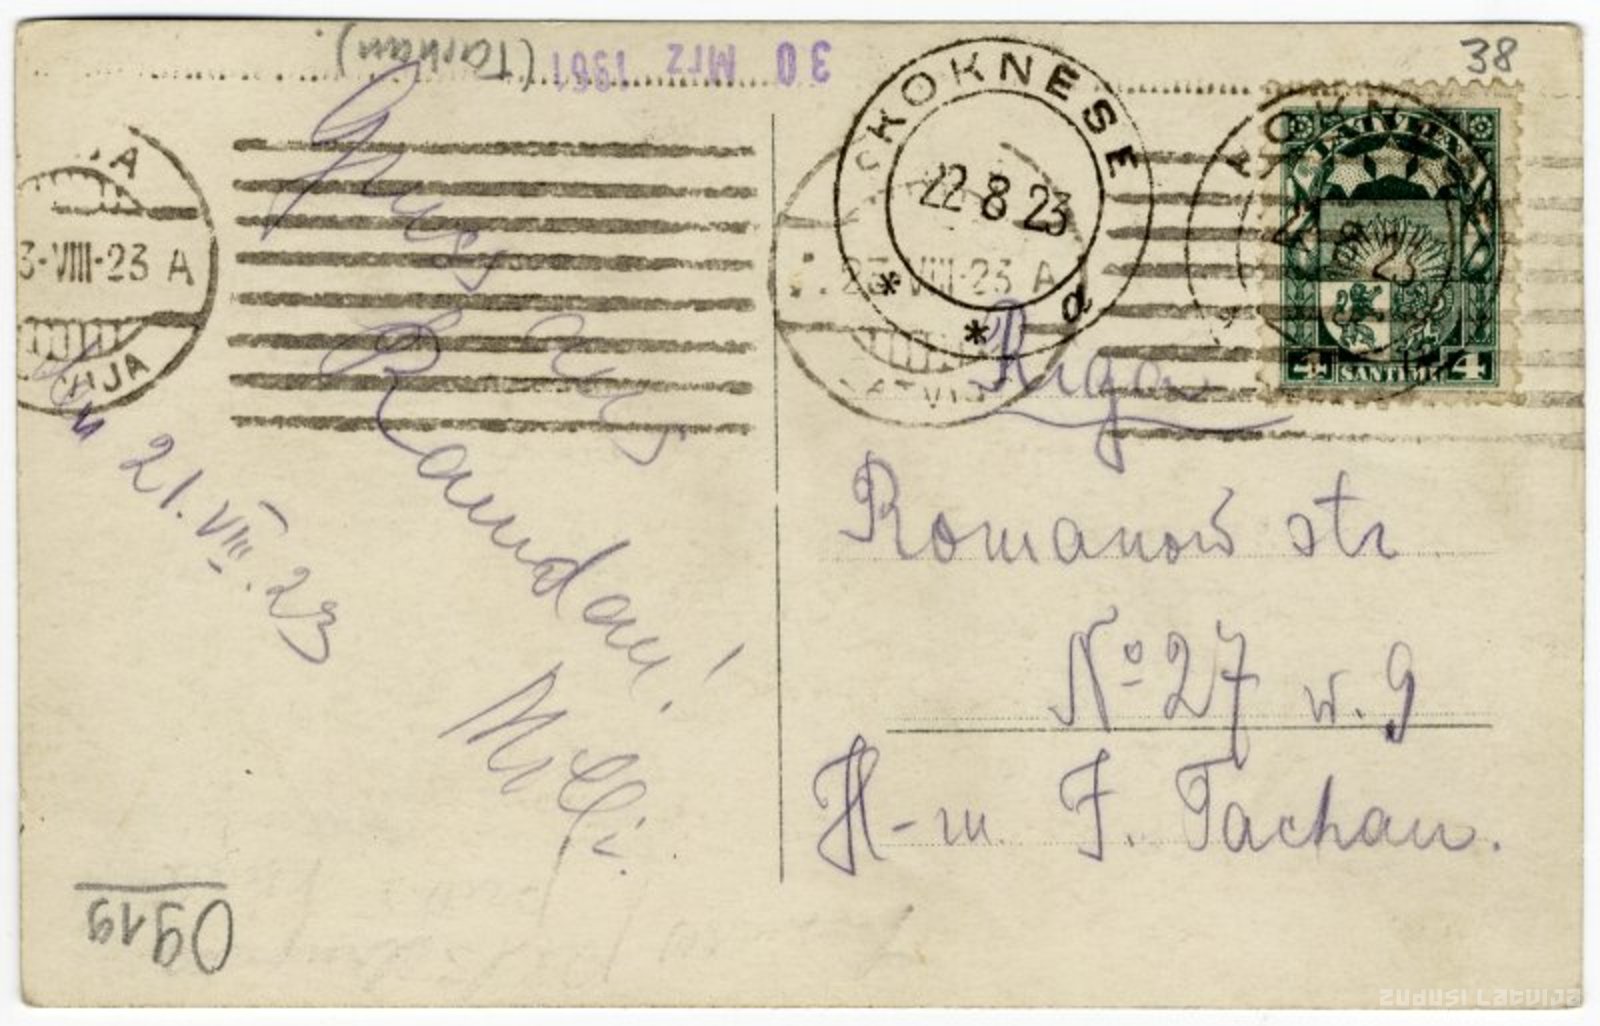 (Tarhan)
30 Mrz 1961
38
KOKNESE
22-8 23
a
LATVIJA
4 SANTIMI 4
3-VIII-23 A
VIJA
23-VIII-23 A
LATVIJ
Gruss aus
Randau!
Milli.
21. VIII. 23
Riga
Romanow str
№ 27 w. 9
H-m J. Tachan.
0919
ZUDUSI LATVIJA